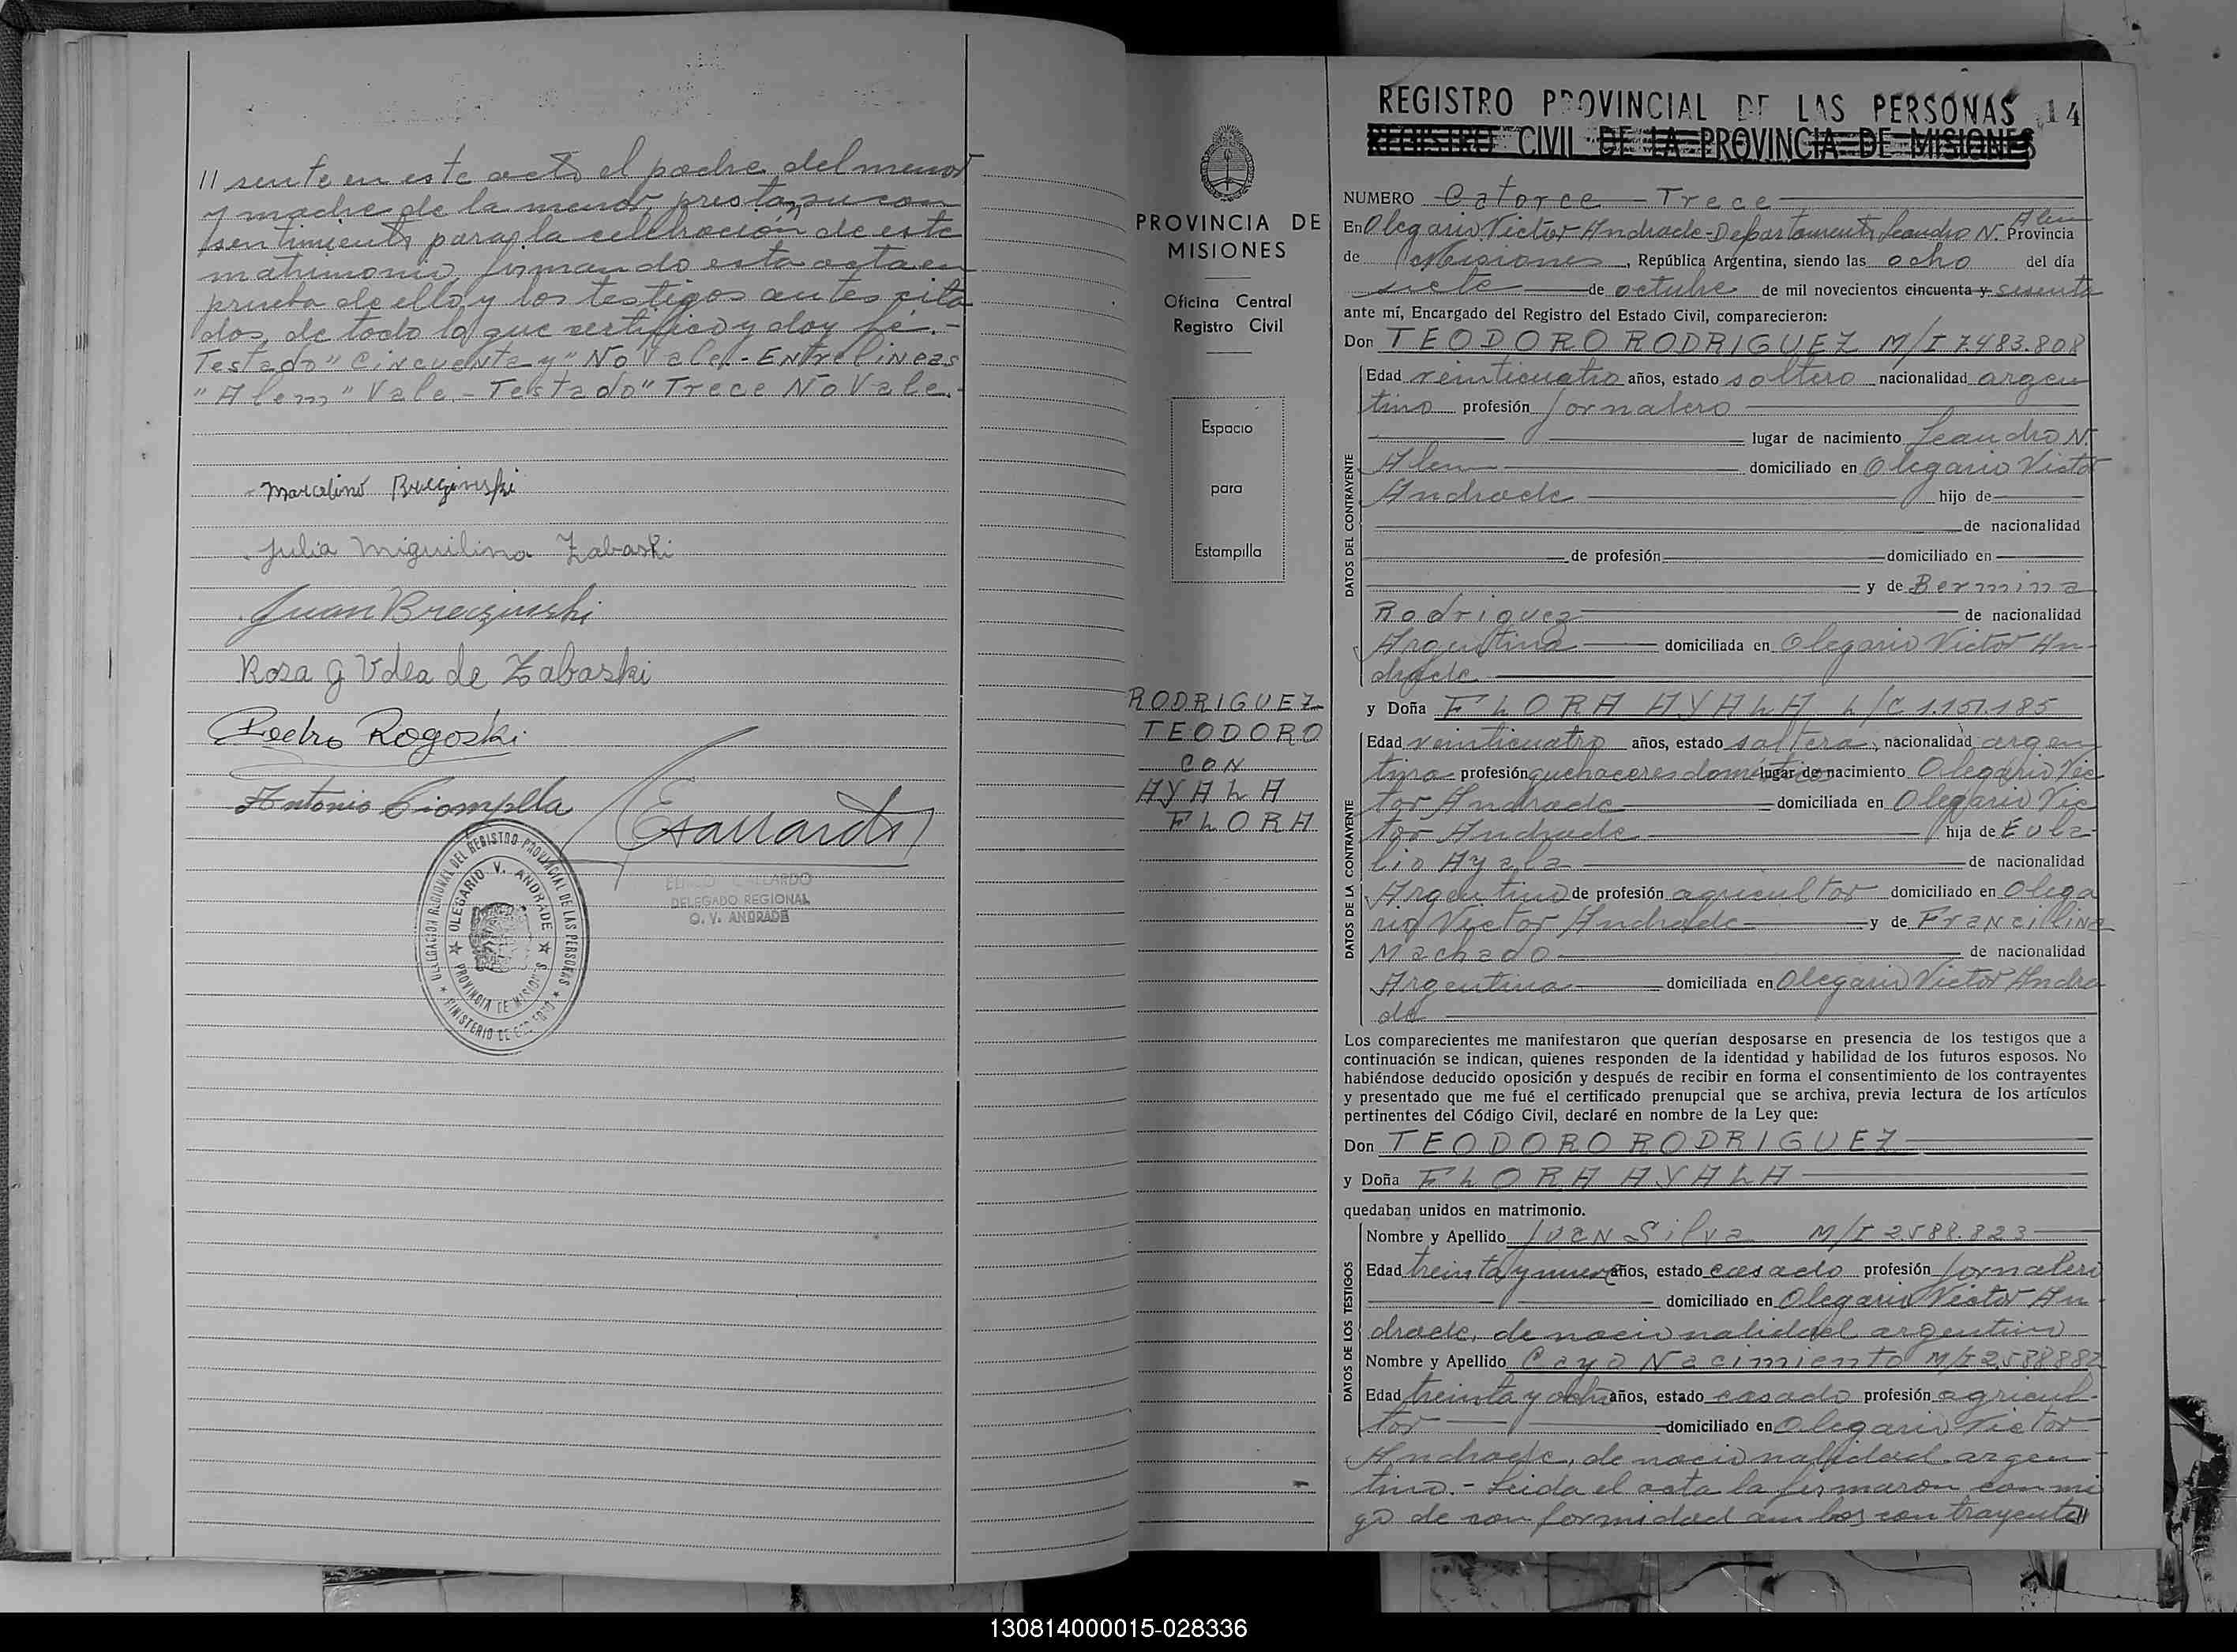 // sente en este acto el padre del menor
y madre de la menor, prestan su con
sentimiento para la celebración de este
matrimonio firmando esta acta en
prueba de ello y los testigos antes cita
dos, de todo lo que certifico y doy fé.-
Testado "Cincuenta y" No Vale.- Entrelineas
"Alem" Vale.- Testado "Trece No Vale.-
Marcelino Breczinski
Julia Miguilina Zabaski
Juan Breczinski
Rosa G Vdea de Zabaski
Pedro Rogoski
Antonio Ciompela
GALLARDO
DELEGADO REGIONAL
O. V. ANDRADE
DELEGACION REGIONAL DEL REGISTRO PROVINCIAL DE LAS PERSONAS
OLEGARIO V. ANDRADE
PROVINCIA DE MISIONES
MINISTERIO DE
PROVINCIA DE
MISIONES
Oficina Central
Registro Civil
Espacio
para
Estampilla
RODRIGUEZ
TEODORO
CON
AYALA
FLORA
REGISTRO PROVINCIAL DE LAS PERSONAS 14
REGISTRO CIVIL DE LA PROVINCIA DE MISIONES
NUMERO Catorce - Trece
Alem
En Olegario Victor Andrade-Departamento Leandro N. Provincia
de Misiones, República Argentina, siendo las ocho del día
siete de octubre de mil novecientos cincuenta y sesenta
ante mí, Encargado del Registro del Estado Civil, comparecieron:
Don TEODORO RODRIGUEZ M/I 7.483.808
Edad veinticuatro años, estado soltero nacionalidad argen
tino profesión jornalero
lugar de nacimiento Leandro N.
Alem domiciliado en Olegario Victor
Andrade hijo de
de nacionalidad
de profesión domiciliado en
y de Bermina
Rodriguez de nacionalidad
Argentina domiciliada en Olegario Victor An-
drade
y Doña FLORA AYALA L/C 1.151.185
Edad veinticuatro años, estado soltera, nacionalidad argen
tina profesión quehaceres domésticos lugar de nacimiento Olegario Vic
tor Andrade domiciliada en Olegario Vic
tor Andrade hija de Eula-
lio Ayala de nacionalidad
Argentino de profesión agricultor domiciliado en Olega
rio Victor Andrade y de Francilina
Machado de nacionalidad
Argentina domiciliada en Olegario Victor Andra
de
Los comparecientes me manifestaron que querían desposarse en presencia de los testigos que a
continuación se indican, quienes responden de la identidad y habilidad de los futuros esposos. No
habiéndose deducido oposición y después de recibir en forma el consentimiento de los contrayentes
y presentado que me fué el certificado prenupcial que se archiva, previa lectura de los artículos
pertinentes del Código Civil, declaré en nombre de la Ley que:
Don TEODORO RODRIGUEZ
y Doña FLORA AYALA
quedaban unidos en matrimonio.
Nombre y Apellido Juan Silva M/I 2.588.823
Edad treinta y nueve años, estado casado profesión jornalero
domiciliado en Olegario Victor An-
drade, de nacionalidad argentino
Nombre y Apellido Cayo Nacimiento M/I 2.588882
Edad treinta y ocho años, estado casado profesión agricul-
tor domiciliado en Olegario Victor
Andrade, de nacionalidad argen-
tino.- Leida el acta la firmaron conmi
go de conformidad ambos contrayente//
DATOS DEL CONTRAYENTE
DATOS DE LA CONTRAYENTE
DATOS DE LOS TESTIGOS
130814000015-028336